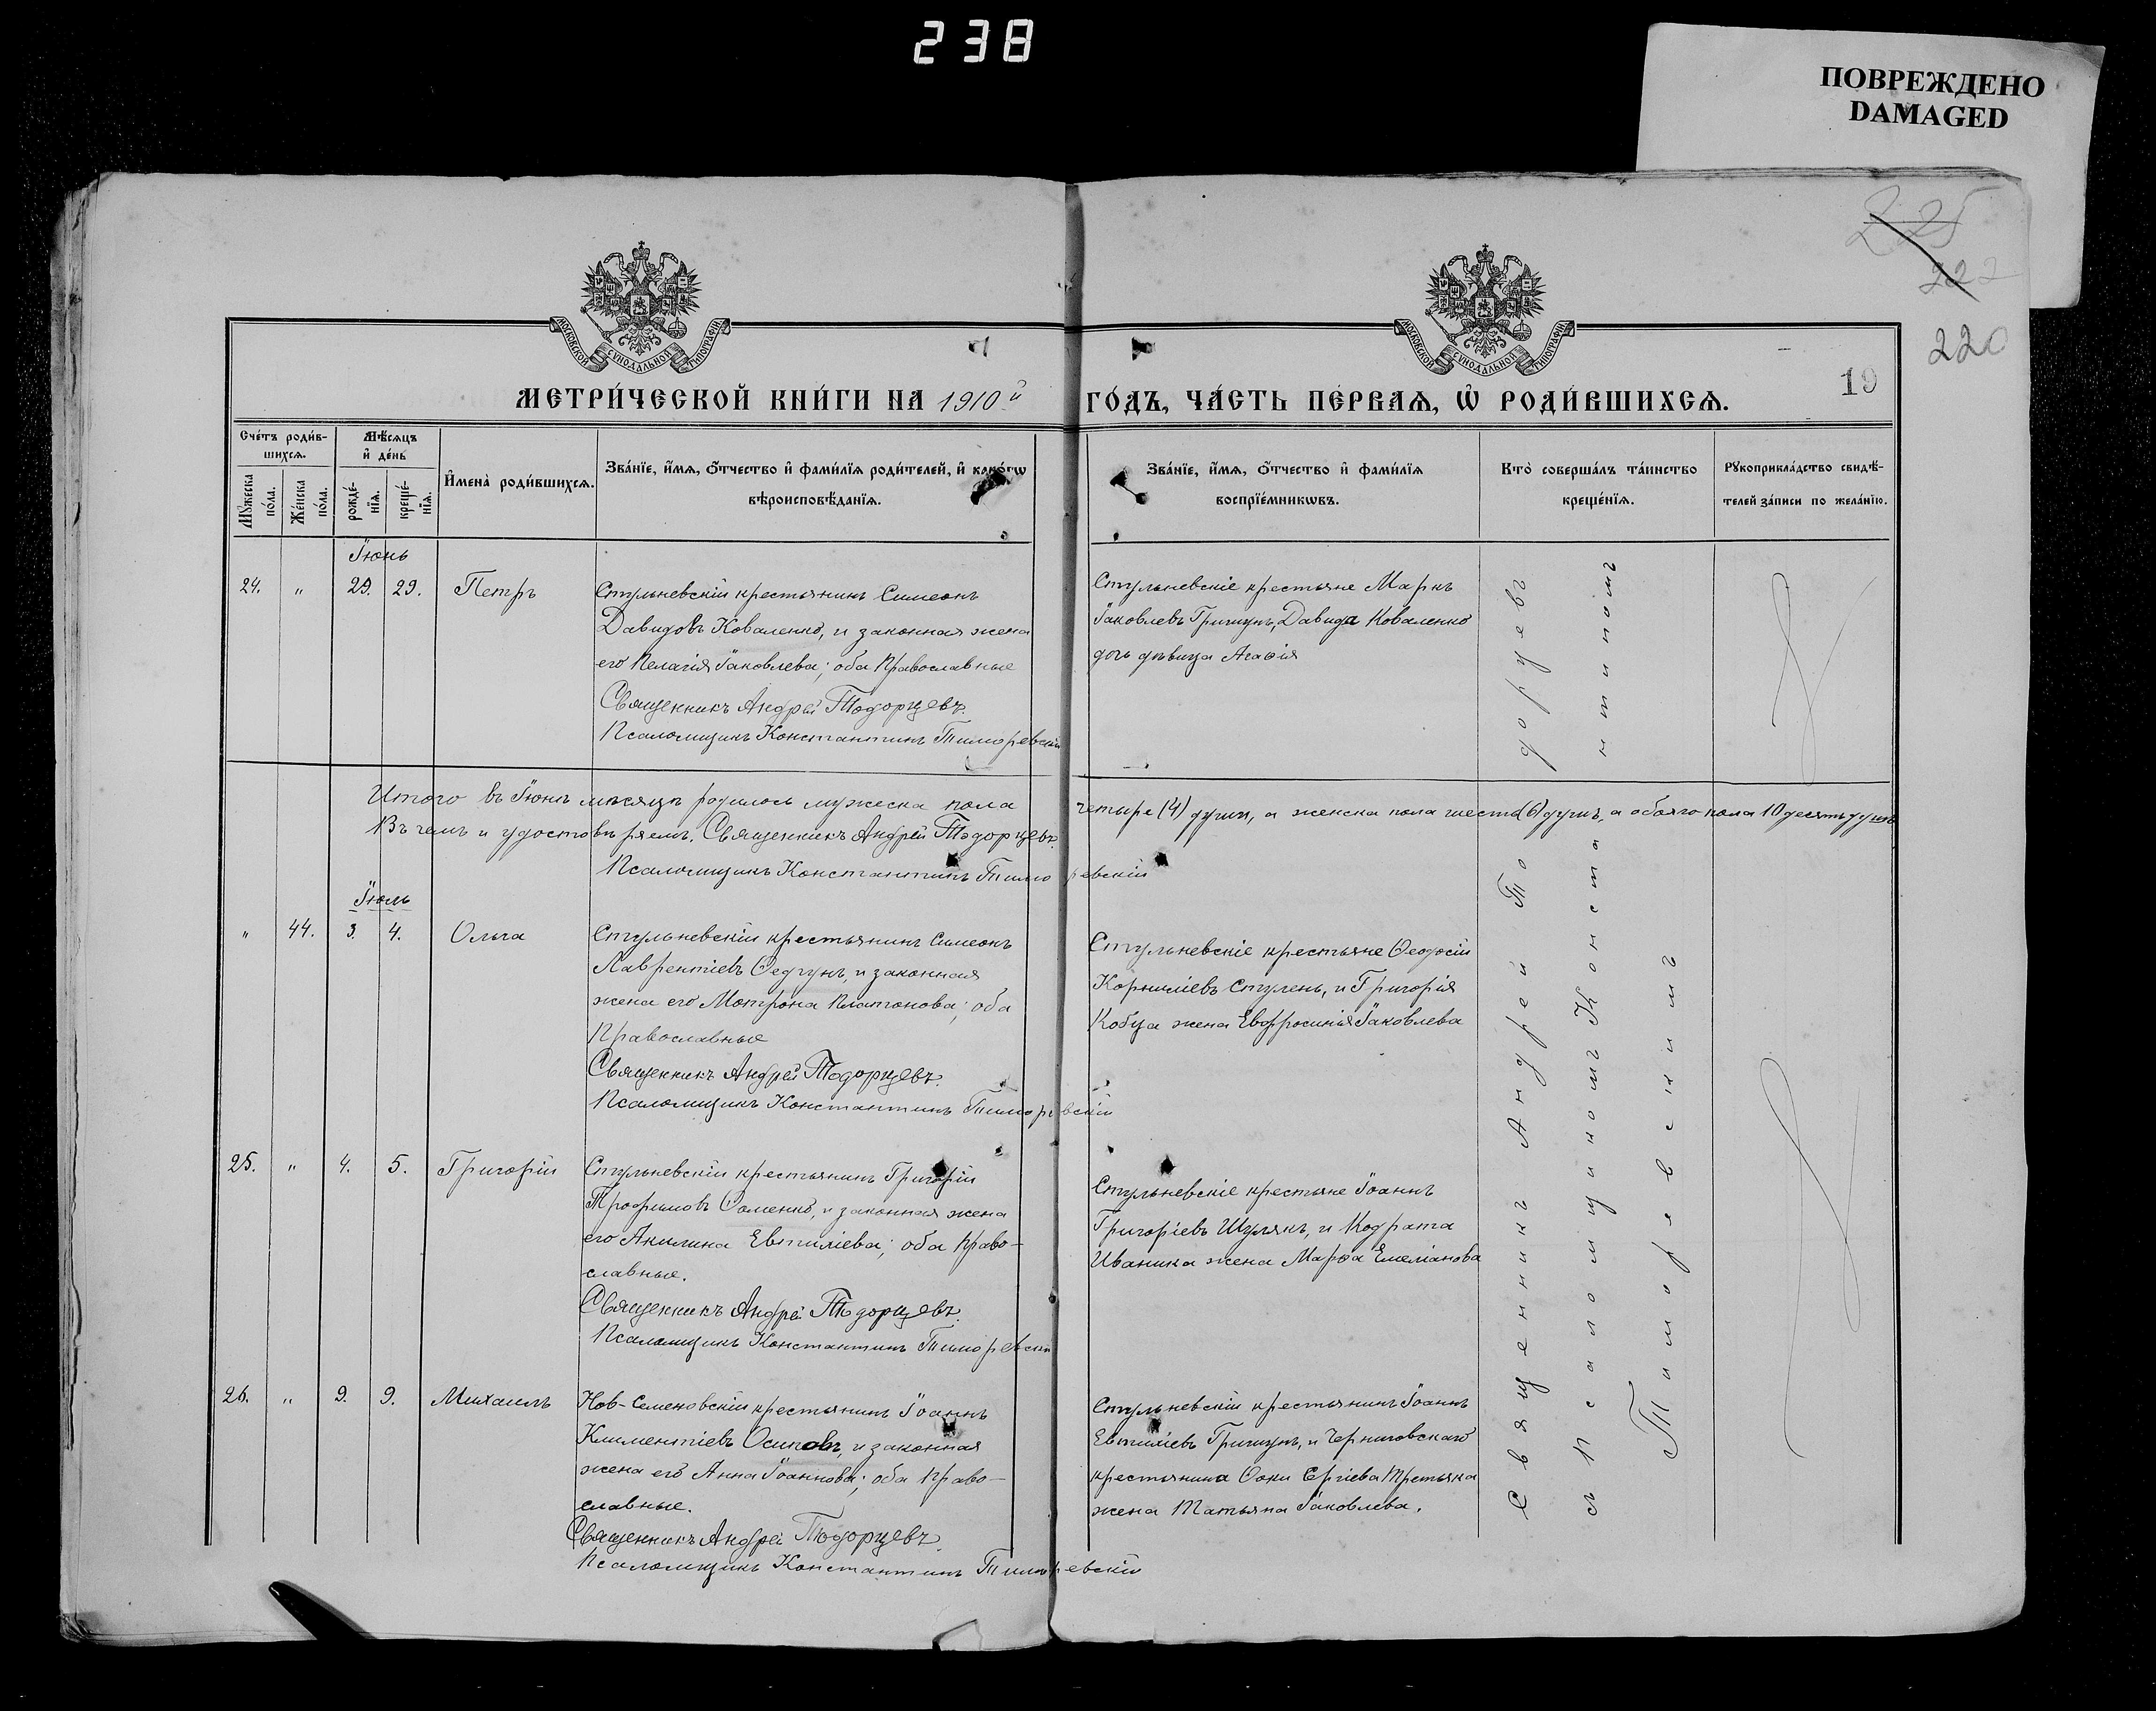 238
ПОВРЕЖДЕНО
DAMAGED
225
222
220
19
МОСКОВСКОЙ СѴНОДАЛЬНОЙ ТИПОГРАФІИ
МОСКОВСКОЙ СѴНОДАЛЬНОЙ ТИПОГРАФІИ
МЕТРИ́ЧЕСКОЙ КНИ́ГИ НА 1910й ГО́ДЪ, ЧА́СТЬ ПЕ́РВАѦ, Ѡ РОДИ́ВШИХСѦ.
Сче́тъ роди́в-
шихсѧ.
Мꙋжеска по́ла.
Же́нска по́ла.
Мѣ́сѧцъ и҆ де́нь
рожде́-
нїѧ.
креще́-
нїѧ.
И҆мена̀ роди́вшихсѧ.
Зва́нїе, и҆́мѧ, ѻ҆́тчество и҆ фами́лїѧ роди́телей, и҆ како́гѡ
вѣроисповѣ́данїѧ.
Зва́нїе, и҆́мѧ, ѻ҆́тчество и҆ фами́лїѧ
воспрїе́мникѡвъ.
Кто̀ соверша́лъ та́инство
креще́нїѧ.
Рꙋкоприкла́дство свидѣ́-
телей за́писи по жела́нїю.
Іюнь
24. " 29. 29. Петръ
Стульневскій крестьянинъ Симеонъ
Давидовъ Коваленко, и законная жена
его Пелагія Іаковлева; оба Православные
Священникъ Андрей Тодорцевъ.
Псаломщикъ Константинъ Тиморевскій
Стульневскіе крестьяне Маркъ
Іаковлевъ Григунъ, Давида Коваленко
дочь дѣвица Агафія
Итого въ Іюнѣ мѣсяцѣ родилось мужеска пола четыре (4) души, а женска пола шесть (6) душъ, а обоего пола 10 десять душъ
Въ чемъ и удостовѣряемъ. Священникъ Андрей Тодорцевъ.
Псаломщикъ Константинъ Тиморевскій
Іюль
" 44. 3. 4. Ольга
Стульневскій крестьянинъ Симеонъ
Лаврентіевъ Ѳедчунъ, и законная
жена его Мотрона Платонова; оба
Православные
Священникъ Андрей Тодорцевъ.
Псаломщикъ Константинъ Тиморевскій
Стульневскіе крестьяне Ѳеодосій
Корниліевъ Стулень, и Григорія
Кобца жена Евфросинія Іаковлева
25. " 4. 5. Григорій
Стульневскій крестьянинъ Григорій
Трофимовъ Ѳоменко, и законная жена
его Акилина Евтиліева; оба Право-
славные.
Священникъ Андрей Тодорцевъ.
Псаломщикъ Константинъ Тиморевскій
Стульневскіе крестьяне Іоаннъ
Григоріевъ Шулякъ, и Кодрата
Иваника жена Марѳа Емеліанова
26. " 9. 9. Михаилъ
Нов-Семеновскій крестьянинъ Іоаннъ
Климентіевъ Осиповъ, и законная
жена его Анна Іоаннова; оба Право-
славные.
Священникъ Андрей Тодорцевъ.
Псаломщикъ Константинъ Тиморевскій
Стульневскій крестьянинъ Іоаннъ
Евтиліевъ Григунъ, и Черниговскаго
крестьянина Ѳоки Сергіева Третьяка
жена Татьяна Іаковлева.
Священникъ Андрей Тодорцевъ
съ Псаломщикомъ Константиномъ
Тиморевскимъ